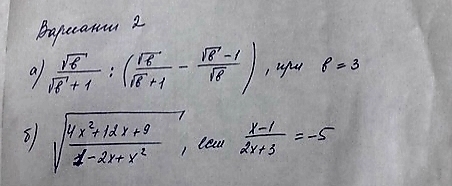 Вариант 2
а) √в/(√в+1) : (√в/(√в+1) − (√в−1)/√в), при в=3
б) √((4x²+12x+9)/(1−2x+x²)), если (x−1)/(2x+3) = −5